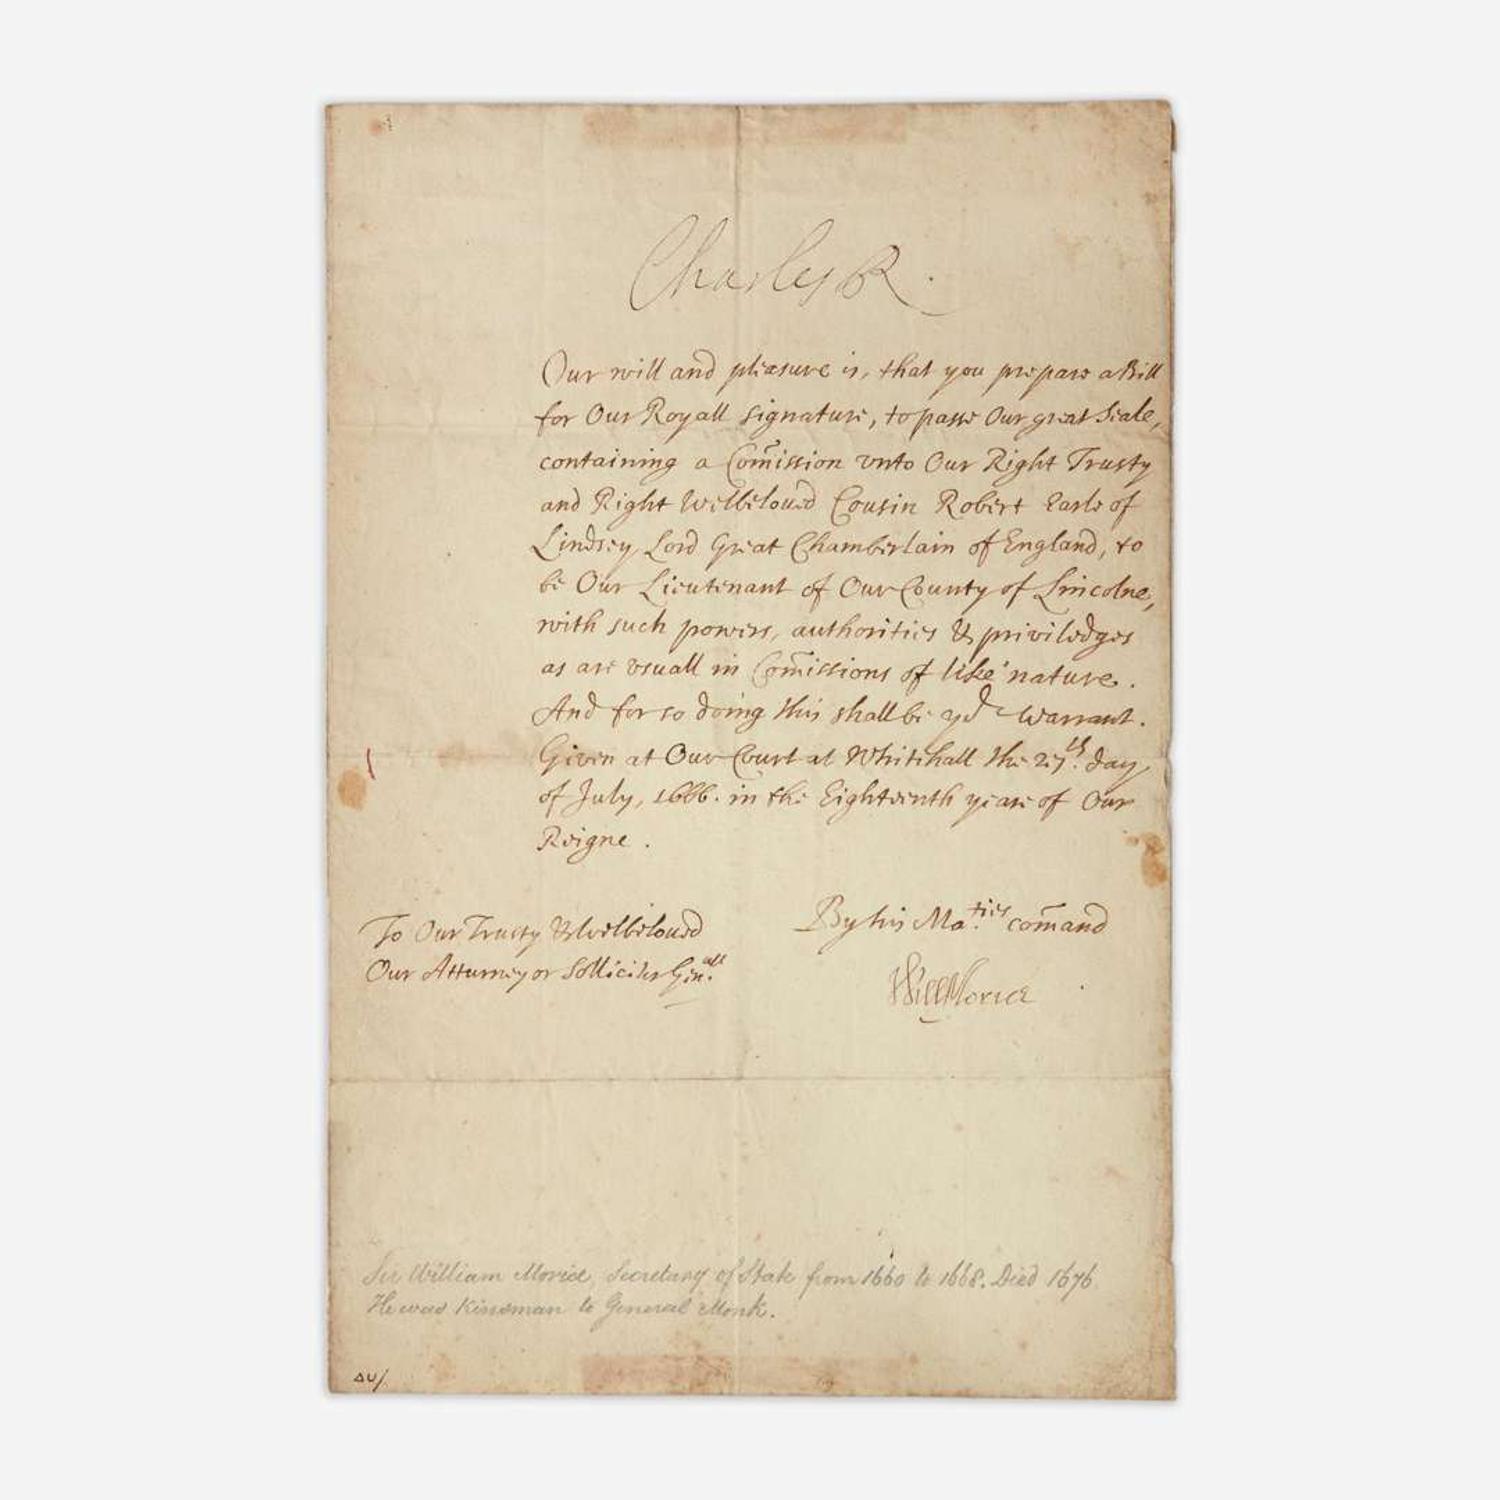 Charles R.
Our will and pleasure is, that you prepare a Bill
for Our Royall signature, to passe Our great Seale,
containing a Com̃ission vnto Our Right Trusty
and Right Welbeloued Cousin Robert Earle of
Lindsey Lord Great Chamberlain of England, to
be Our Lieutenant of Our County of Lincolne,
with such powers, authorities & priviledges
as are vsuall in Com̃issions of like nature.
And for so doing this shall be yor Warrant.
Given at Our Court at Whitehall the 27th. day
of July, 1666. in the Eighteenth yeare of Our
Reigne.
To Our Trusty & Welbeloued
Our Atturney or Solliciter Gen.all
By his Ma.ties com̃and
Will Morice
Sir William Morice, Secretary of State from 1660 to 1668. Died 1676.
He was Kinsman to General Monk.